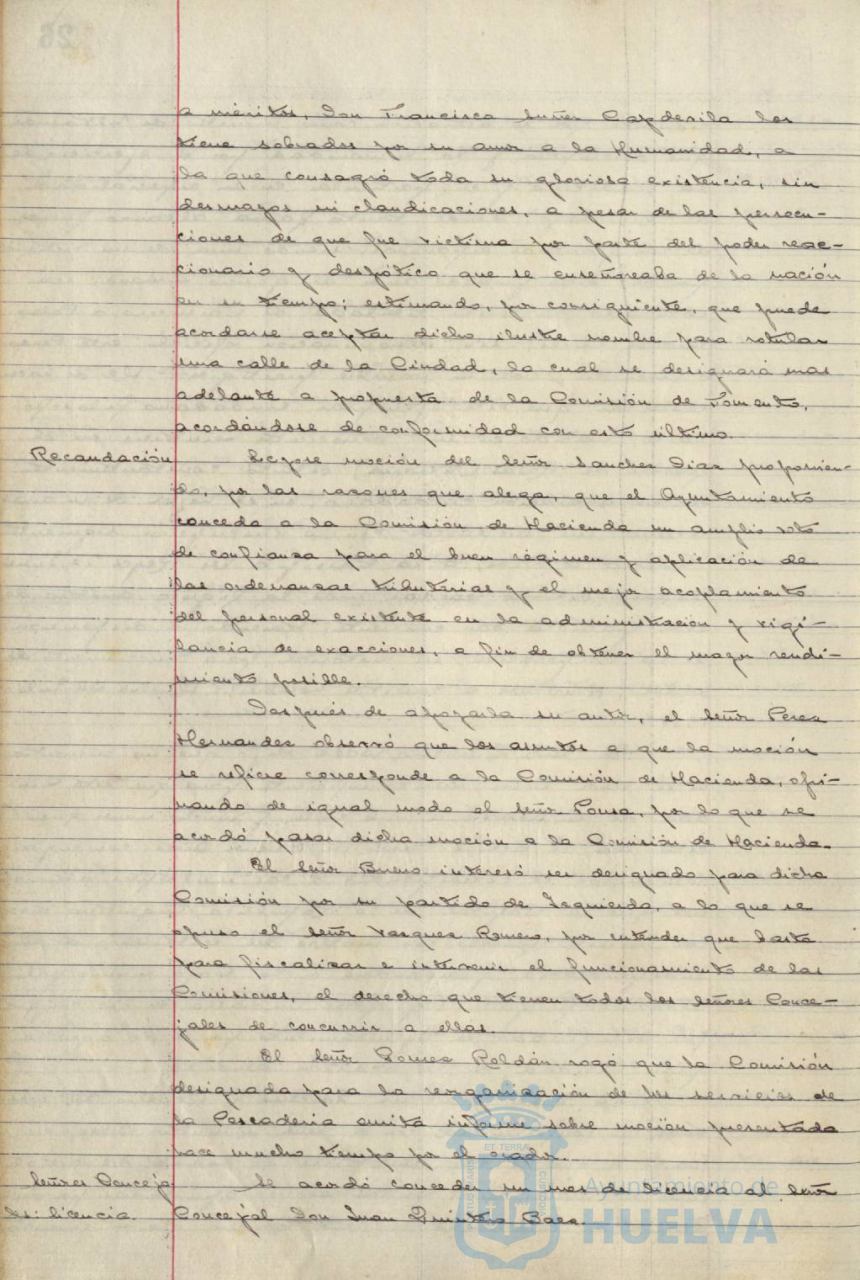 a méritos, Don Francisco Suñer Capdevila los
tiene sobrados por su amor a la Humanidad, a
la que consagró toda su gloriosa existencia, sin
desmayos ni claudicaciones, a pesar de las persecu-
ciones de que fue victima por parte del poder reac-
cionario y despótico que se enseñoreaba de la nación
en su tiempo; estimando, por consiguiente, que puede
acordarse aceptar dicho ilustre nombre para rotular
una calle de la Ciudad, la cual se designará mas
adelante a propuesta de la Comisión de Fomento,
acordándose de conformidad con esto último.
Recaudación Leyose moción del Señor Sanchez Diaz proponien-
do, por las razones que alega, que el Ayuntamiento
conceda a la Comisión de Hacienda un amplio voto
de confianza para el buen régimen y aplicación de
las ordenanzas tributarias y el mejor acoplamiento
del personal existente en la administración y vigi-
lancia de exacciones, a fin de obtener el mayor rendi-
miento posible.
Después de apoyarla su autor, el Señor Perez
Hernandez observó que los asuntos a que la moción
se refiere corresponde a la Comisión de Hacienda, opi-
nando de igual modo el Señor Ponsa, por lo que se
acordó pasar dicha moción a la Comisión de Hacienda.
El Señor Bueno interesó ser designado para dicha
Comisión por su partido de Izquierda, a lo que se
opuso el Señor Vasquez Romero, por entender que basta
para fiscalizar e intervenir el funcionamiento de las
Comisiones, el derecho que tienen todos los Señores Conce-
jales de concurrir a ellas.
El Señor Gomez Roldán rogó que la Comisión
designada para la reorganización de los servicios de
la Pescaderia emita informe sobre moción presentada
hace mucho tiempo por el orador.
Señores Conceja Se acordó conceder un mes de licencia al Señor
les: licencia. Concejal Don Juan Quintero Baez.
ET TERRAE
Ayuntamiento de
HUELVA